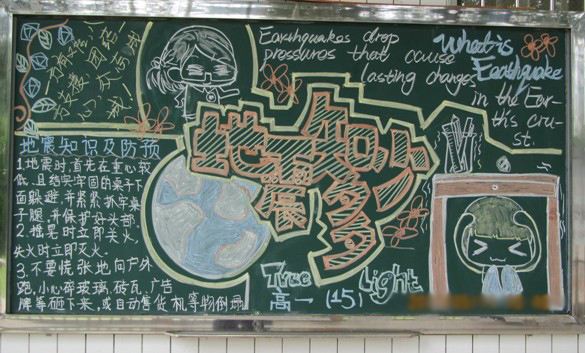 团结
Earthquakes drop
pressures that cause
lasting changes
in the Ear-
th's cru-
st.
What is
Earthquake
地震知多少
地震知识及防预
1.地震时,首先在重心较
低、且结实牢固的桌子下
面躲避,并紧紧抓牢桌
子腿,并保护好头部.
2.摇晃时立即关火,
失火时立即灭火.
3.不要慌张地向户外
跑,小心碎玻璃,砖瓦,广告
牌等砸下来,或自动售货机等物倒塌.
True Light
高一 (15)